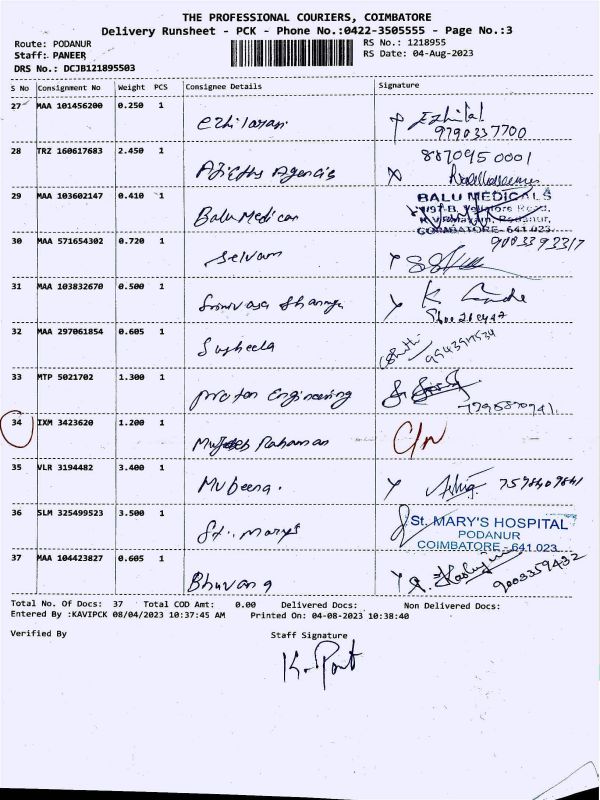 THE PROFESSIONAL COURIERS, COIMBATORE
Delivery Runsheet - PCK - Phone No.:0422-3505555 - Page No.:3
Route: PODANUR
RS No.: 1218955
Staff: PANEER
RS Date: 04-Aug-2023
DRS No.: DCJB121895503
S No Consignment No Weight PCS Consignee Details Signature
27 MAA 101456200 0.250 1 Ezhilarasi
9790337700
28 TRZ 160617683 2.450 1 8870950001
29 MAA 103602147 0.410 1 Balu Medical BALU MEDICALS
COIMBATORE - 641 023.
30 MAA 571654302 0.720 1 Selvam
31 MAA 103832670 0.500 1 Srinivasa
32 MAA 297061854 0.605 1 Susheela
33 MTP 5021702 1.300 1 Proton Engineering
34 IXM 3423620 1.200 1 Rahaman C/N
35 VLR 3194482 3.400 1 Mubeena.
36 SLM 325499523 3.500 1 St. Marys St. MARY'S HOSPITAL
PODANUR
COIMBATORE - 641 023
37 MAA 104423827 0.605 1 Bhuvana
9003359432
Total No. Of Docs: 37 Total COD Amt: 0.00 Delivered Docs: Non Delivered Docs:
Entered By :KAVIPCK 08/04/2023 10:37:45 AM Printed On: 04-08-2023 10:38:40
Verified By Staff Signature